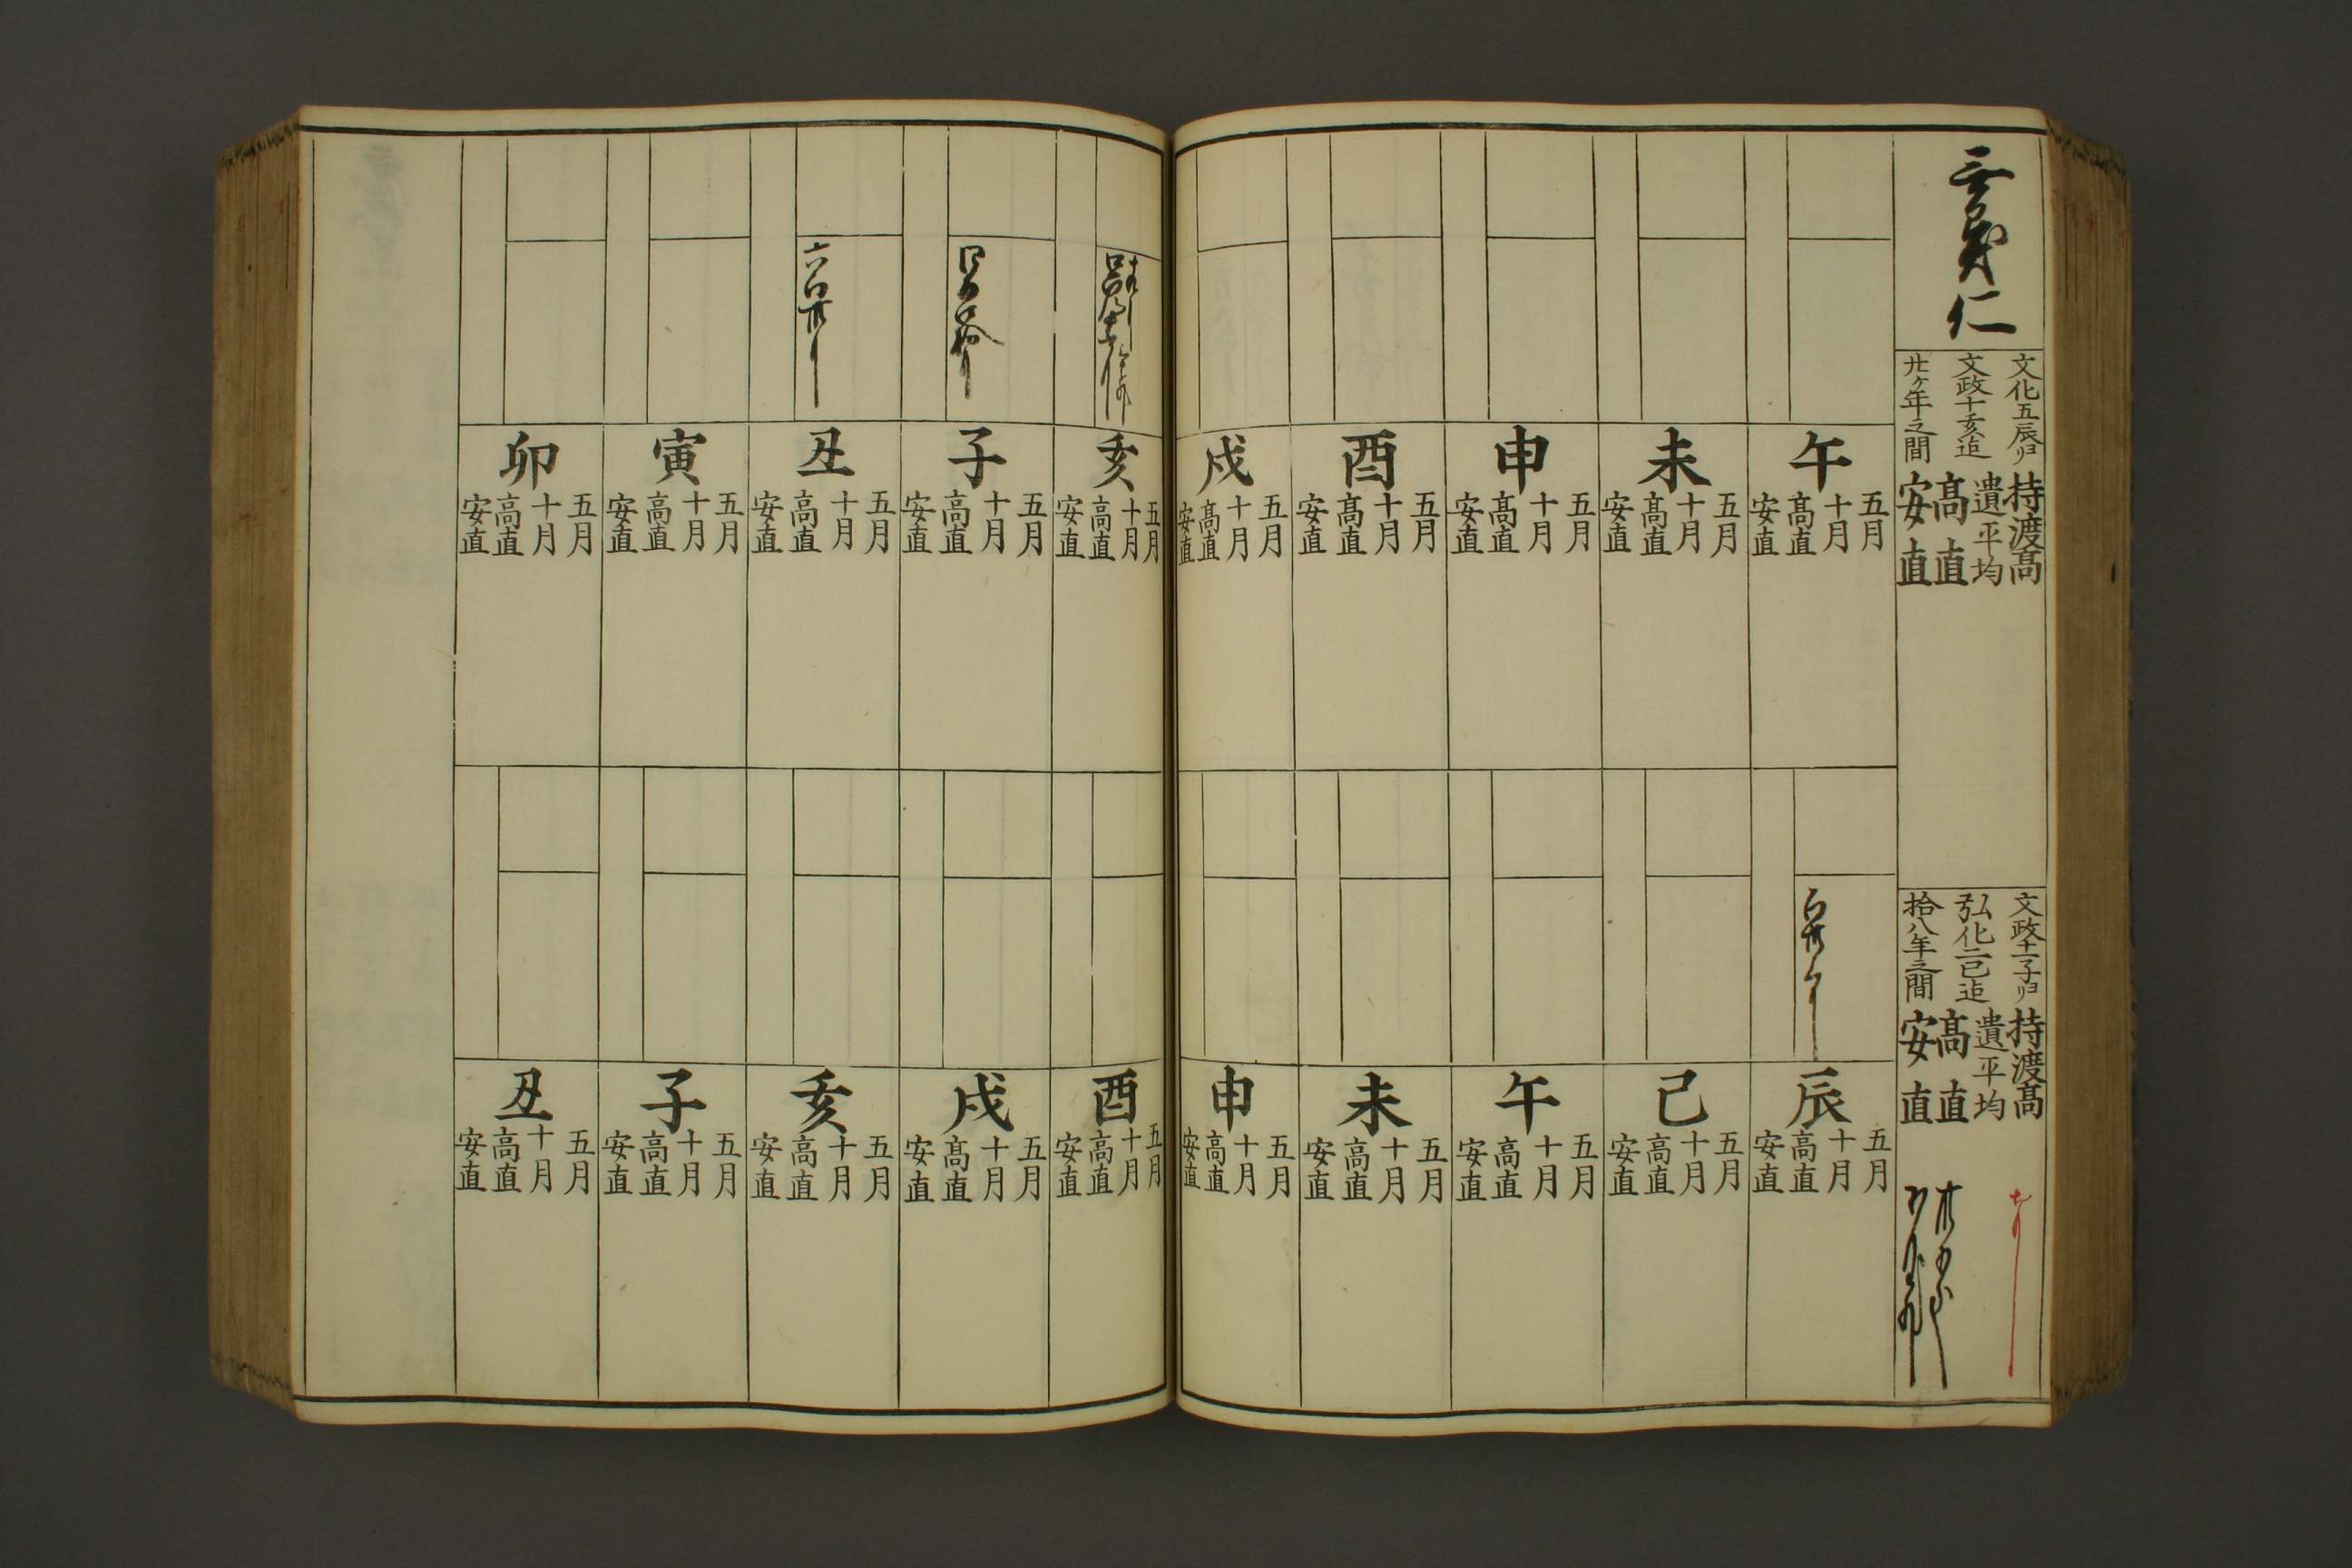 仁
文化五辰ゟ
文政十亥迄
廿ヶ年之間
持渡高
遺平均
高直
安直
文政十一子ゟ
弘化二巳迄
拾八年之間
持渡高
遺平均
高直
安直
午
五月
十月
高直
安直
未
五月
十月
高直
安直
申
五月
十月
高直
安直
酉
五月
十月
高直
安直
戌
五月
十月
高直
安直
亥
五月
十月
高直
安直
子
五月
十月
高直
安直
丑
五月
十月
高直
安直
寅
五月
十月
高直
安直
卯
五月
十月
高直
安直
辰
五月
十月
高直
安直
巳
五月
十月
高直
安直
午
五月
十月
高直
安直
未
五月
十月
高直
安直
申
五月
十月
高直
安直
酉
五月
十月
高直
安直
戌
五月
十月
高直
安直
亥
五月
十月
高直
安直
子
五月
十月
高直
安直
丑
五月
十月
高直
安直